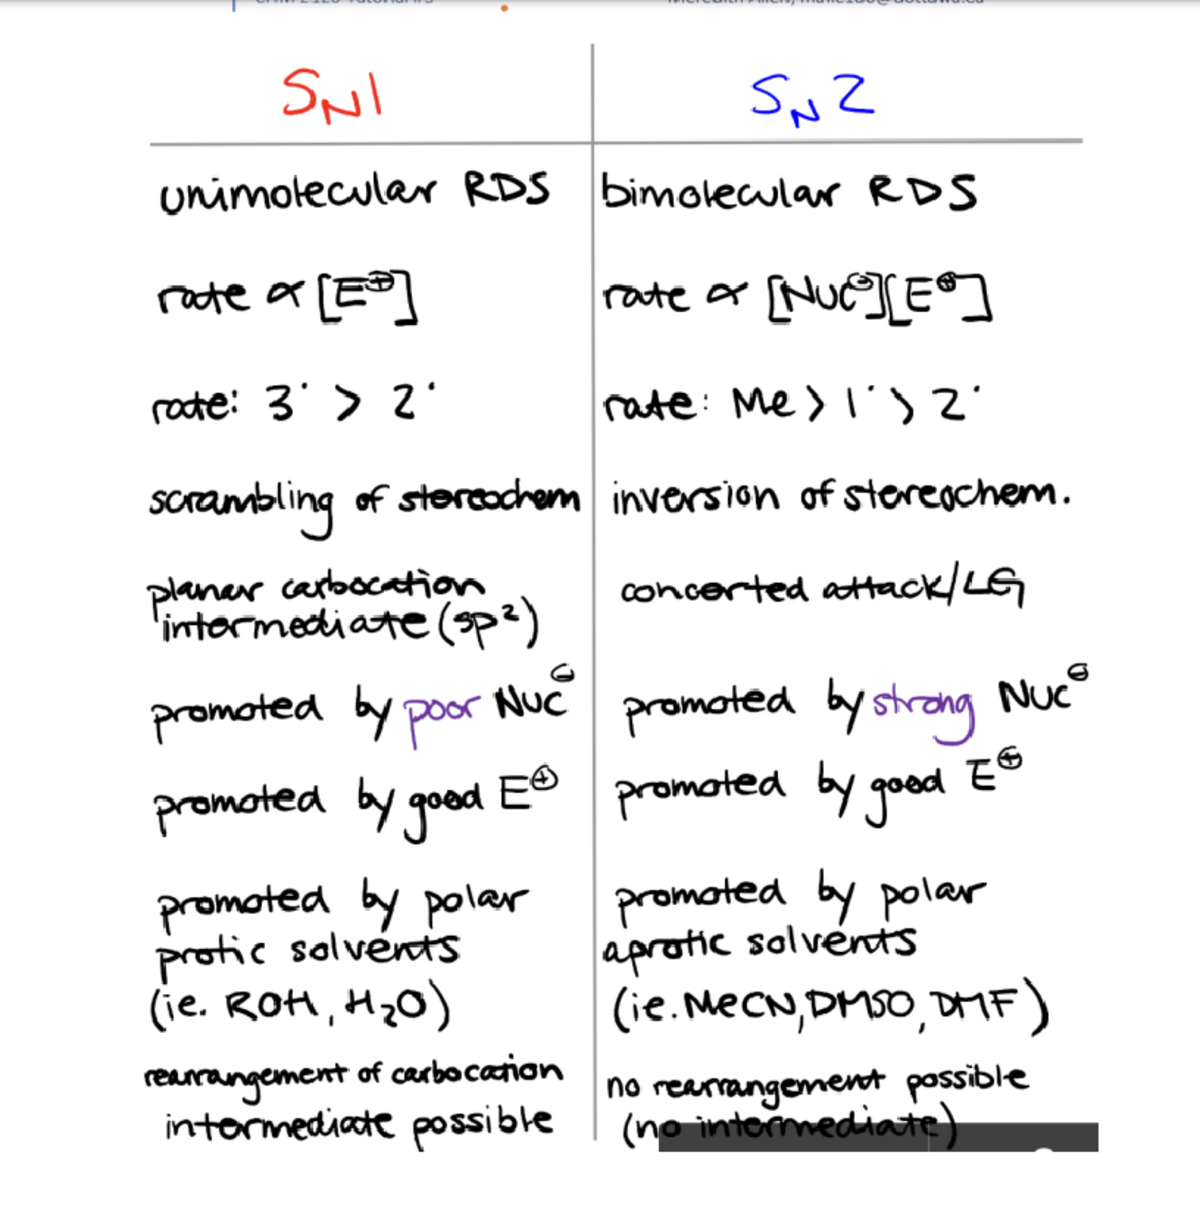 SN1
SN2
unimolecular RDS
bimolecular RDS
rate ∝ [E⊕]
rate ∝ [Nuc⊖][E⊕]
rate: 3° > 2°
rate: Me > 1° > 2°
scrambling of stereochem
inversion of stereochem.
planar carbocation
intermediate (sp²)
concerted attack/LG
promoted by poor Nuc⊖
promoted by strong Nuc⊖
promoted by good E⊕
promoted by good E⊕
promoted by polar
protic solvents
(ie. ROH, H₂O)
promoted by polar
aprotic solvents
(ie. MeCN, DMSO, DMF)
rearrangement of carbocation
intermediate possible
no rearrangement possible
(no intermediate)